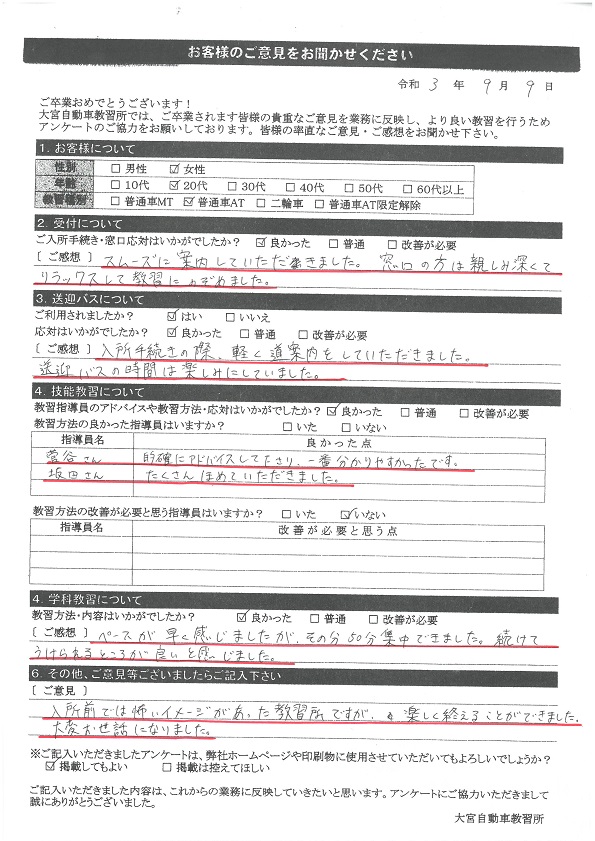 お客様のご意見をお聞かせください
令和 3 年 9 月 9 日
ご卒業おめでとうございます！
大宮自動車教習所では、ご卒業されます皆様の貴重なご意見を業務に反映し、より良い教習を行うため
アンケートのご協力をお願いしております。皆様の率直なご意見・ご感想をお聞かせ下さい。
1. お客様について
性別 □ 男性 ☑ 女性
年齢 □ 10代 ☑ 20代 □ 30代 □ 40代 □ 50代 □ 60代以上
教習種別 □ 普通車MT ☑ 普通車AT □ 二輪車 □ 普通車AT限定解除
2. 受付について
ご入所手続き・窓口応対はいかがでしたか？ ☑ 良かった □ 普通 □ 改善が必要
［ご感想］ スムーズに案内していただきました。窓口の方は親しみ深くて
リラックスして教習にのぞめました。
3. 送迎バスについて
ご利用されましたか？ ☑ はい □ いいえ
応対はいかがでしたか？ ☑ 良かった □ 普通 □ 改善が必要
［ご感想］ 入所手続きの際、軽く道案内をしていただきました。
送迎バスの時間は楽しみにしていました。
4. 技能教習について
教習指導員のアドバイスや教習方法・応対はいかがでしたか？ ☑ 良かった □ 普通 □ 改善が必要
教習方法の良かった指導員はいますか？ □ いた □ いない
指導員名 良かった点
菅谷さん 的確にアドバイスして下さり、一番分かりやすかったです。
坂田さん たくさんほめていただきました。
教習方法の改善が必要と思う指導員はいますか？ □ いた ☑ いない
指導員名 改善が必要と思う点
4. 学科教習について
教習方法・内容はいかがでしたか？ ☑ 良かった □ 普通 □ 改善が必要
［ご感想］ ペースが早く感じましたが、その分50分集中できました。続けて
うけられるところが良いと感じました。
6. その他、ご意見等ございましたらご記入下さい
［ご意見］
入所前では怖いイメージがあった教習所ですが、楽しく終えることができました。
大変お世話になりました。
※ご記入いただきましたアンケートは、弊社ホームページや印刷物に使用させていただいてもよろしいでしょうか？
☑ 掲載してもよい □ 掲載は控えてほしい
ご記入いただきました内容は、これからの業務に反映していきたいと思います。アンケートにご協力いただきまして
誠にありがとうございました。
大宮自動車教習所